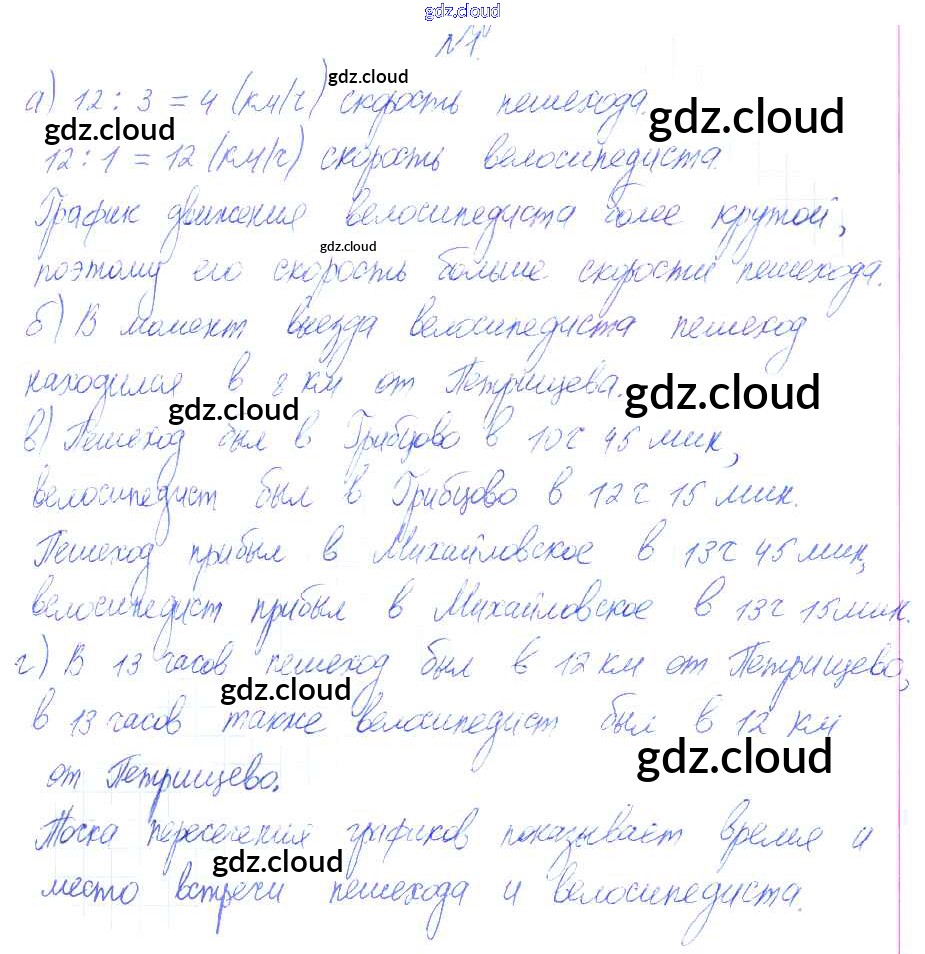 gdz.cloud
№1.
gdz.cloud
а) 12 : 3 = 4 (км/ч) скорость пешехода.
gdz.cloud gdz.cloud
12 : 1 = 12 (км/ч) скорость велосипедиста.
График движения велосипедиста более крутой,
gdz.cloud
поэтому его скорость больше скорости пешехода.
б) В момент выезда велосипедиста пешеход
находился в 8 км от Петрищева.
gdz.cloud gdz.cloud
в) Пешеход был в Грибцово в 10 ч 45 мин,
велосипедист был в Грибцово в 12 ч 15 мин.
Пешеход прибыл в Михайловское в 13 ч 45 мин,
велосипедист прибыл в Михайловское в 13 ч 15 мин.
г) В 13 часов пешеход был в 12 км от Петрищево,
gdz.cloud
в 13 часов также велосипедист был в 12 км
gdz.cloud
от Петрищево.
Точка пересечения графиков показывает время и
gdz.cloud
место встречи пешехода и велосипедиста.